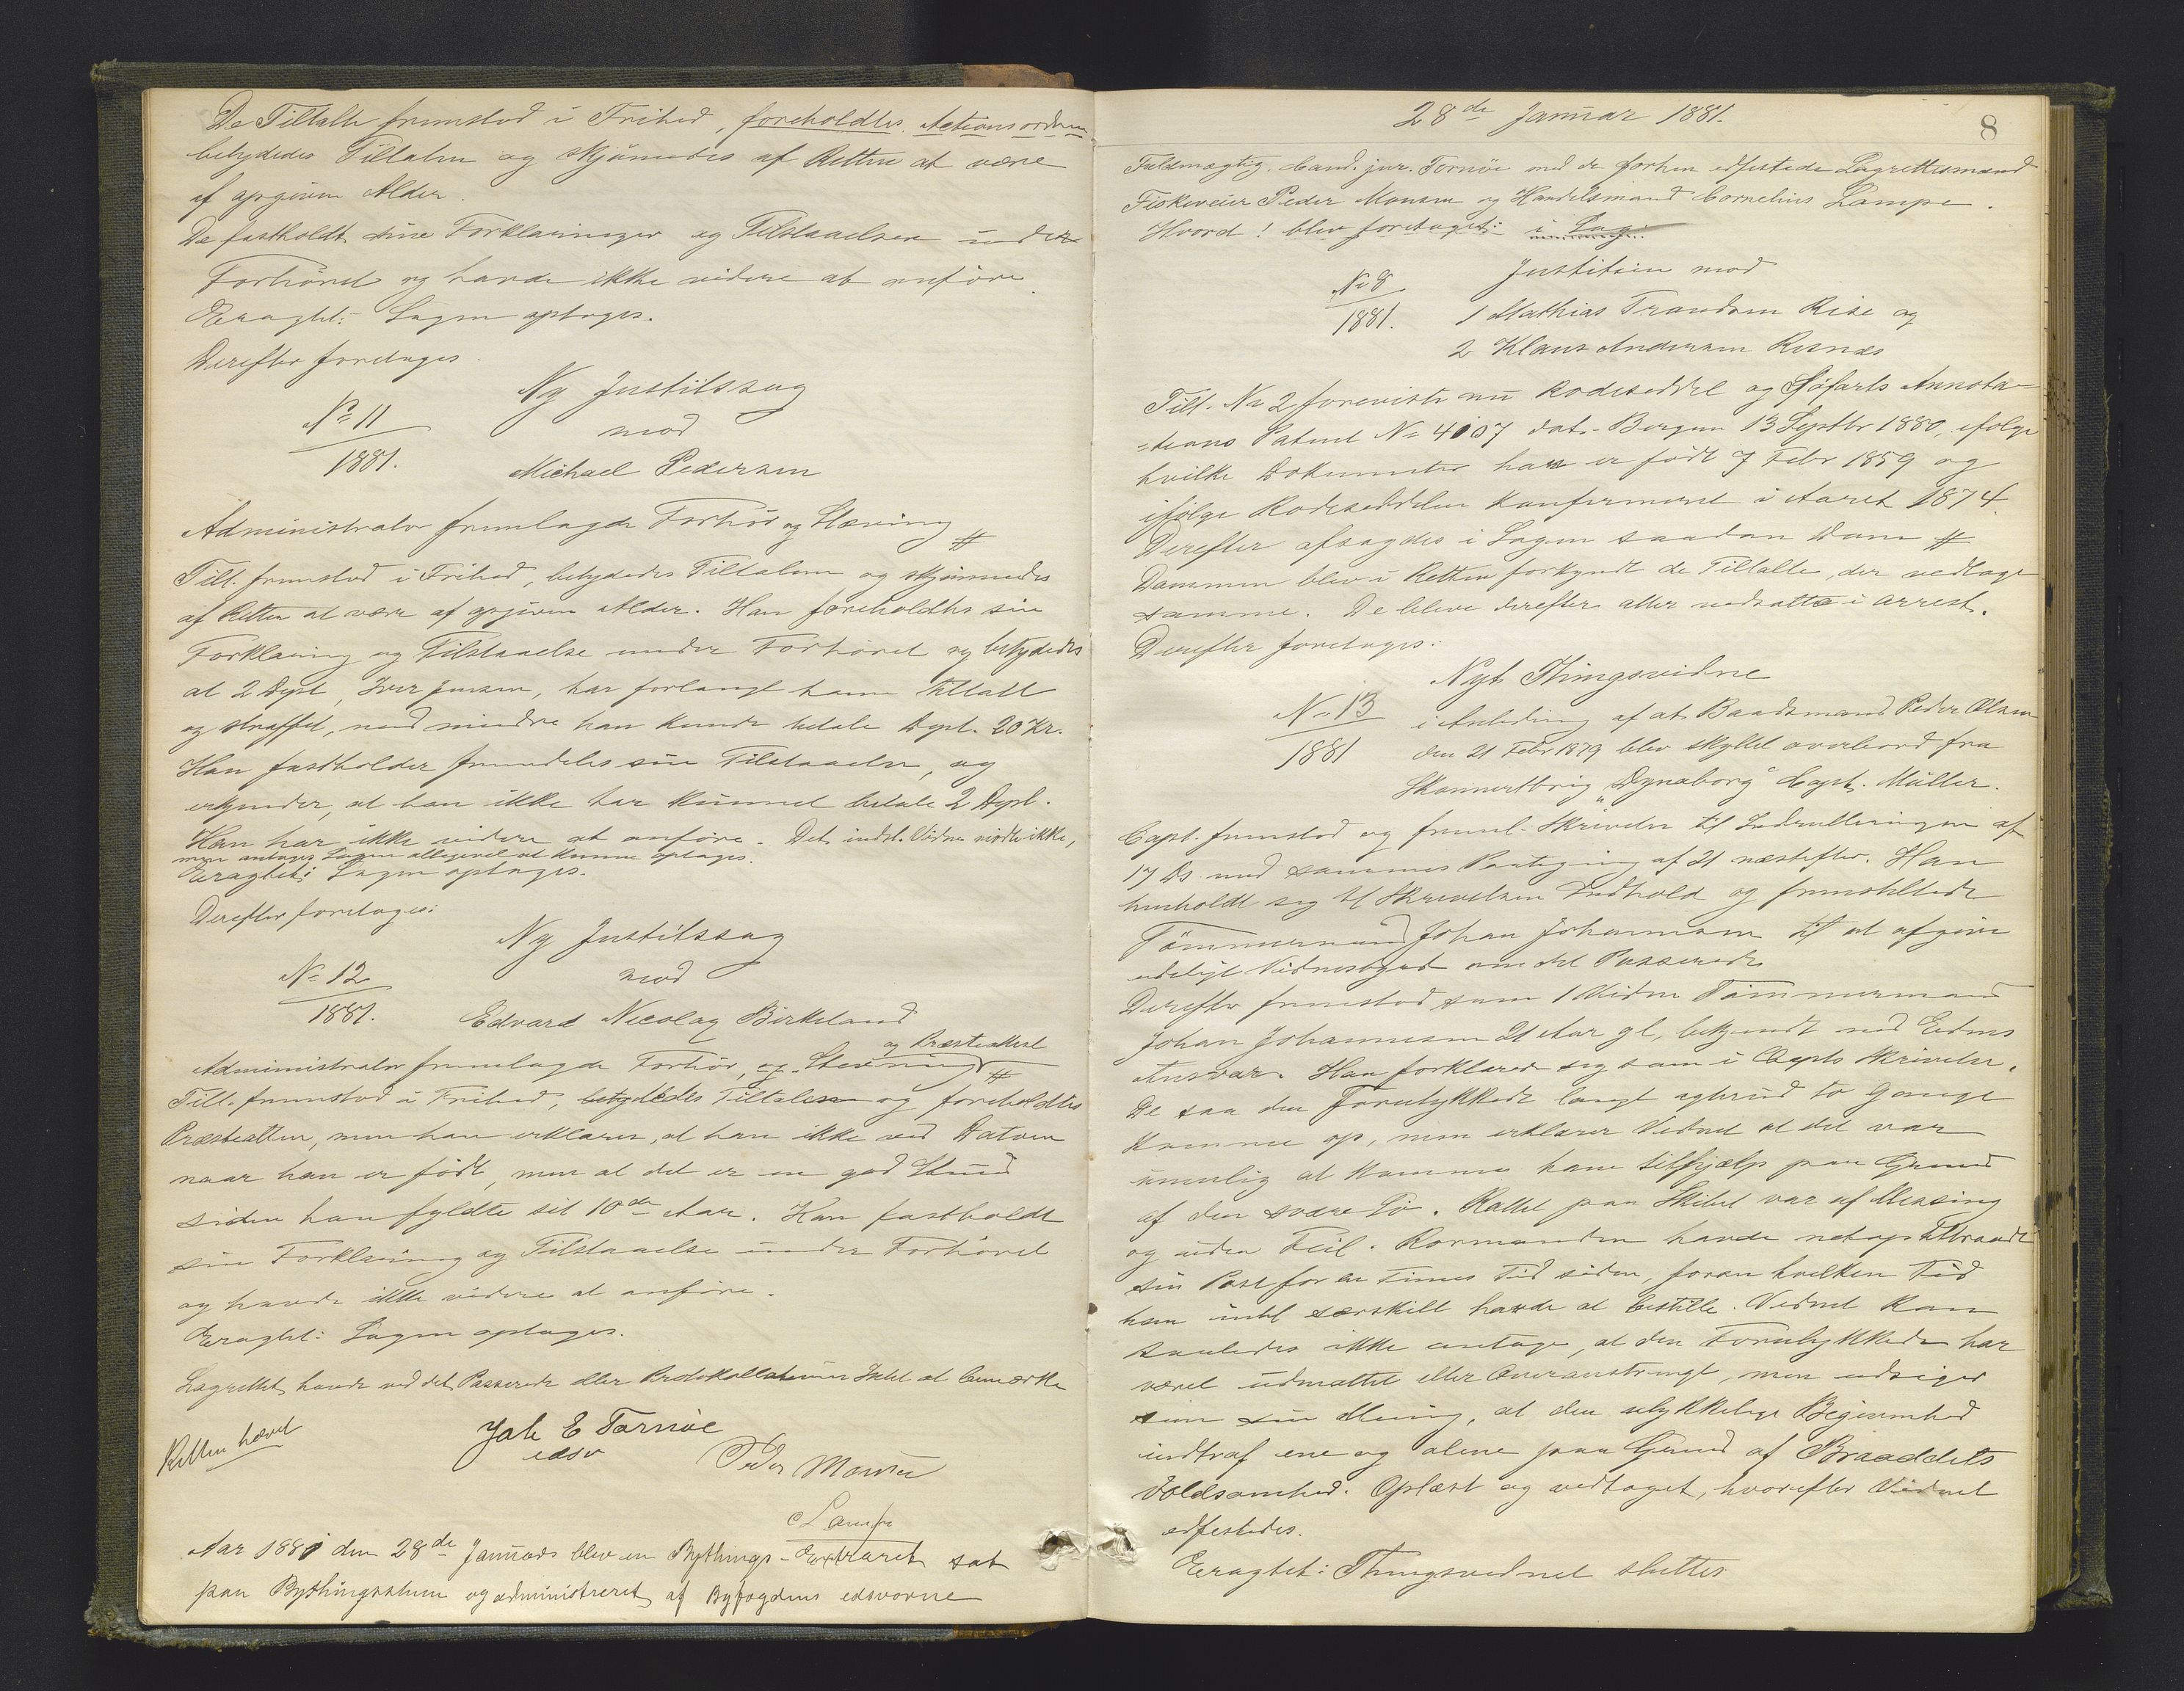 De Tiltalte fremstod i Frihed, foreholdtes Actionsordren
betydedes Tiltalen og skjönnedes af Retten at være
af opgiven Alder.
De fastholdt sine Forklaringer og Tilstaaelser under
Forhöret og havde ikke videre at anföre.
Eragtet: Sagen optages.
Derefter foretages.
Ny Justitssag
No 11
1881.
mod
Michael Pedersen
Administrator fremlagde Forhör og Stævning #
Tilt. fremstod i Frihed, betydedes Tiltalen og skjönnedes
af Retten at være af opgiven Alder. Han foreholdtes sin
Forklaring og Tilstaaelse under Forhöret og betydedes
at 2 Dept, Iver Jensen, har forlangt ham tiltalt
og straffet, med mindre han kunde betale Dept. 20 Kr.
Han fastholder fremdeles sin Tilstaaelse, og
erkjender, at han ikke har kunnet betale 2 Dept.
Han har ikke videre at anföre. Det indst. Vidne mödte ikke,
men antages Sagen alligevel at kunne optages.
Eragtet: Sagen optages.
Derefter foretages:
Ny Justitssag
No 12
1881.
mod
Edvard Nicolay Birkeland
og Præsteattest
Administrator fremlagde Forhör, og Stævning #
Tilt. fremstod i Frihed, betydedes Tiltalen og foreholdtes
Præsteatten, men han erklærer, at han ikke ved Datoen
naar han er födt, men at det er en god Stund
siden han fyldte sit 10de Aar. Han fastholdt
sin Forklaring og Tilstaaelse under Forhöret
og havde ikke videre at anföre.
Eragtet: Sagen optages.
Lagrettet havde ved det Passerede eller Protokollationen Intet at bemærke
Retten hævet
Joh E Tornöe
edsv
Peder Monsen
C Lampe
Aar 1881 den 28de Januar blev en Bythings-Extraret sat
paa Bythingsstuen og administreret af Byfogdens edsvorne
28de Januar 1881.
8
Fuldmægtig, Cand. jur. Tornöe med de forhen edfæstede Lagrettesmænd
Fiskeveier Peder Monsen og Handelsmand Cornelius Lampe.
Hvord! blev foretaget: i Sag:
No 8
1881.
Justitien mod
1 Mathias Trondsen Rise og
2 Klaus Andersen Risnæs
Tilt. No 2 foreviste nu Rodeseddel og Söfarts Annota-
=tions Patent No 4107 dat. Bergen 13 Septbr 1880, ifölge
hvilke Dokumenter han er födt 7 Febr 1859 og
ifölge Rodeseddelen konfirmeret i Aaret 1874.
Derefter afsagdes i Sagen saadan Dom #
Dommen blev i Retten forkyndt de Tiltalte, der vedtoge
samme. De bleve derefter atter nedsatte i Arrest.
Derefter foretages:
Nyt Thingsvidne
No 13
1881
i Anledning af at Baadsmand Peder Olsen
den 21 Febr 1879 blev skyllet overbord fra
Skonnertbrig "Dynaborg" Capt. Müller.
Capt. fremstod og freml. Skrivelse til Indrulleringen af
17 Ds med sammes Paategning af 21 næstefter. Han
henholdt sig til Skrivelsens Indhold og fremstillede
Tömmermand Johan Johannesen til at afgive
edeligt Vidnesbyrd om det Passerede
Derefter fremstod som 1 Vidne Tömmermand
Johan Johannesen 21 Aar gl, bekjendt med Edens
Ansvar. Han forklarede sig som i Capts Skrivelse.
De saa den Forulykkede langt agterud to Gange
komme op, men erklærer Vidnet at det var
umulig at komme ham tilhjælp paa Grund
af den svære Sö. Rattet paa Skibet var af Messing
og uden Feil. Rormanden havde netop tiltraadt
sin Post for en Times Tid siden, foran hvilken Tid
han intet særskilt havde at bestille. Vidnet kan
saaledes ikke antage, at den Forulykkede har
været udmattet eller Overanstrengt, men udsiger
som sin Mening, at den ulykkelige Begivenhed
indtraf ene og alene paa Grund af Braaddets
Voldsomhed. Oplæst og vedtaget, hvorefter Vidnet
edfæstedes.
Eragtet: Thingsvidnet sluttes